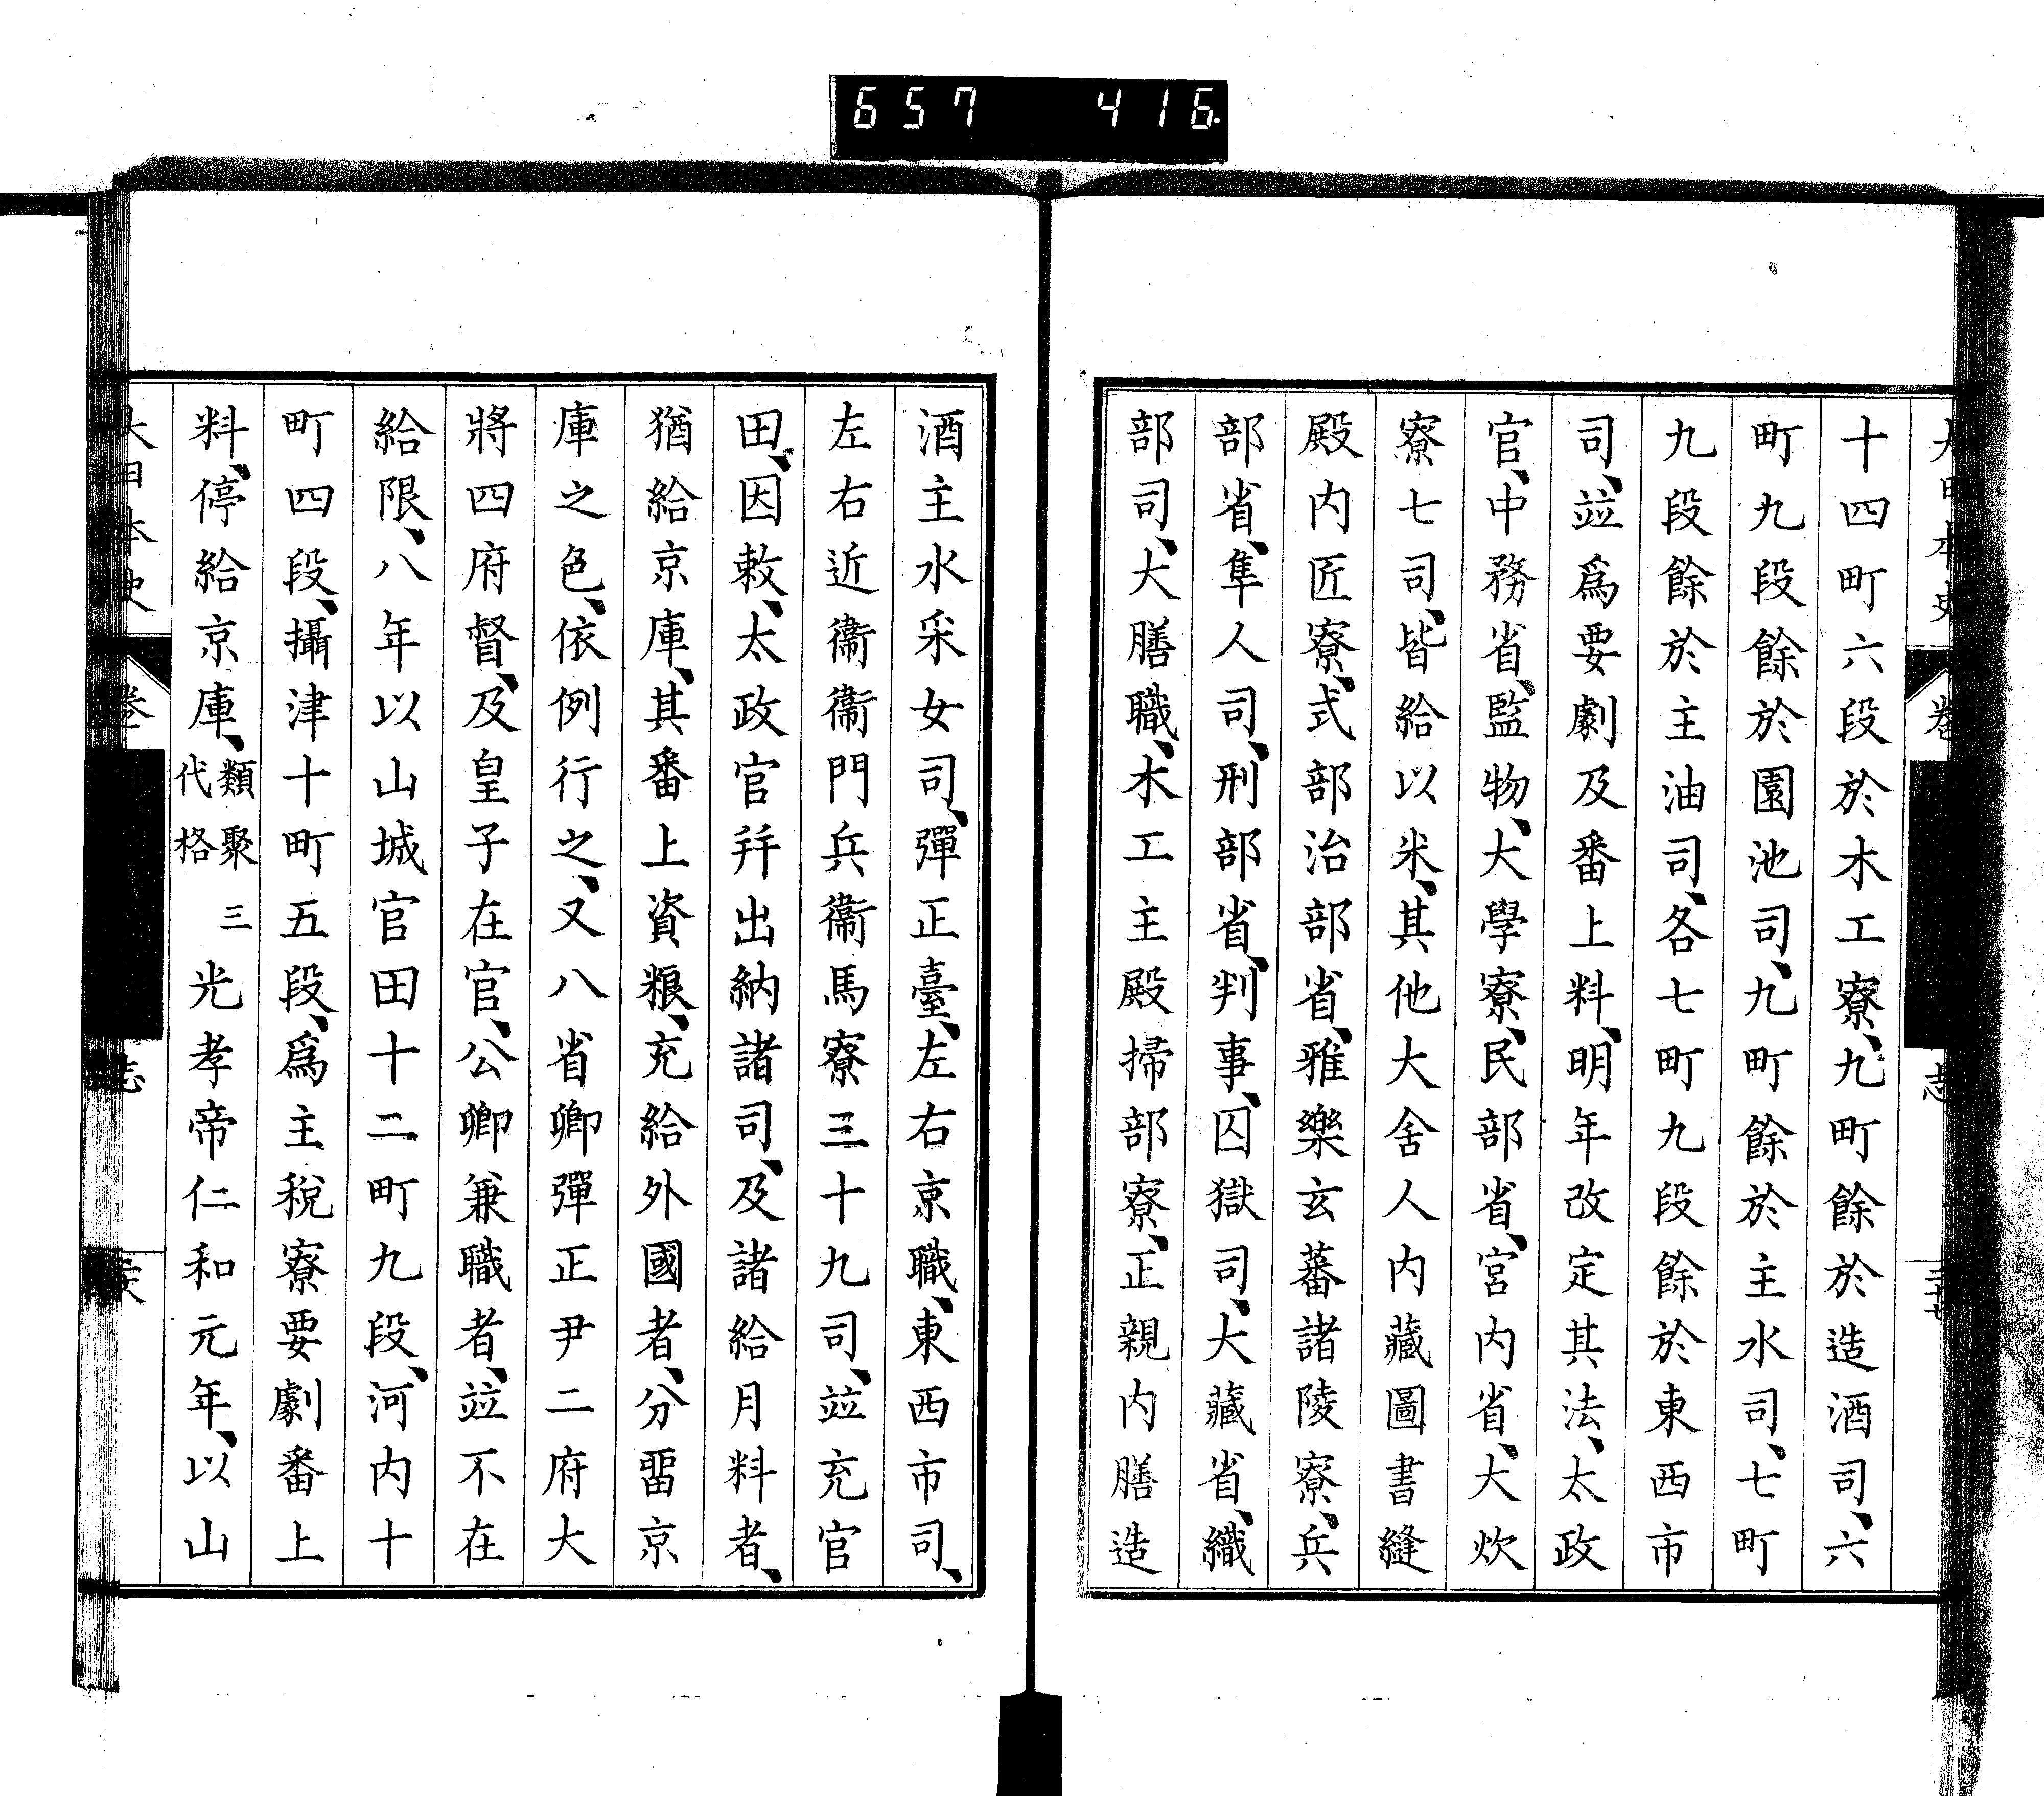 657 416
十四町六段於木工寮、九町餘於造酒司、六
町九段餘於園池司、九町餘於主水司、七町
九段餘於主油司、各七町九段餘於東西市
司、竝爲要劇及番上料、明年改定其法、太政
官、中務省、監物、大學寮、民部省、宮內省、大炊
寮七司、皆給以米、其他大舍人內藏圖書縫
殿內匠寮、式部治部省、雅樂玄蕃諸陵寮、兵
部省、隼人司、刑部省、判事、囚獄司、大藏省、織
部司、大膳職、木工主殿掃部寮、正親內膳造
酒主水采女司、彈正臺、左右京職、東西市司、
左右近衞衞門兵衞馬寮三十九司、竝充官
田、因敕、太政官幷出納諸司、及諸給月料者、
猶給京庫、其番上資粮、充給外國者、分畱京
庫之色、依例行之、又八省卿彈正尹二府大
將四府督、及皇子在官、公卿兼職者、竝不在
給限、八年以山城官田十二町九段、河內十
町四段、攝津十町五段、爲主稅寮要劇番上
料、停給京庫、類聚三代格 光孝帝仁和元年、以山
大日本史 卷 志